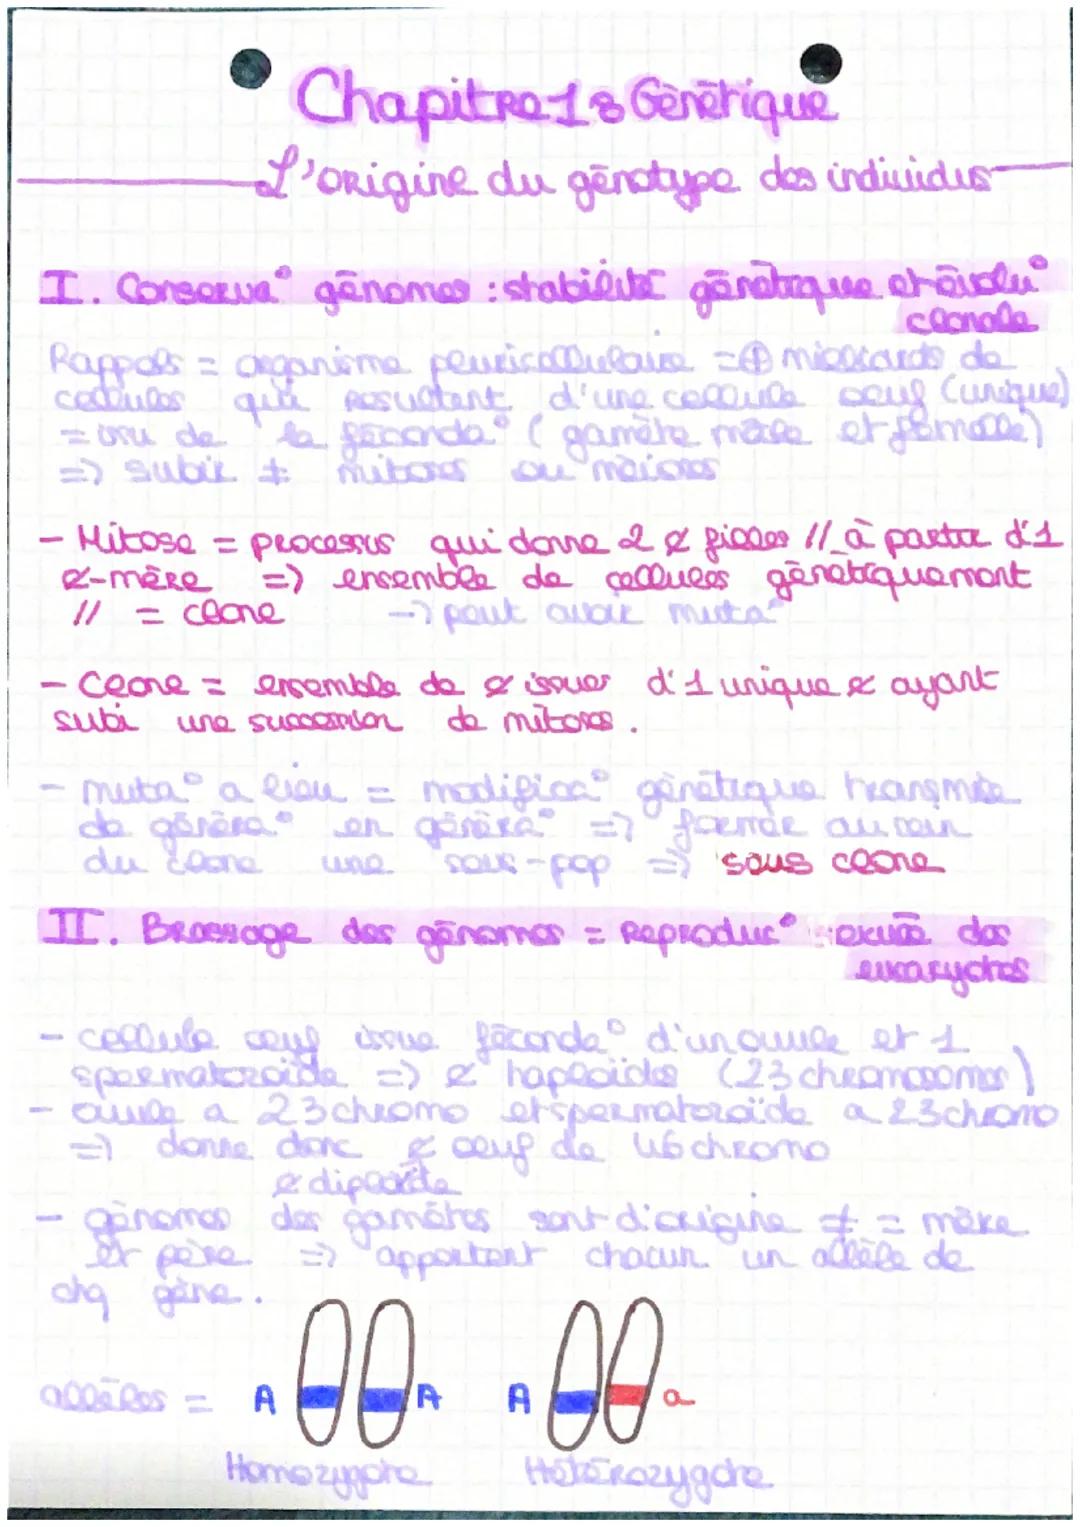 Chapitre 1 : Génétique
L'origine du génotype des individus
I. Conserva° génomes : stabilité génétique et évolu°
clonale
Rappels = organisme pluricellulaire = ⊕ milliards de
cellules qui resultent d'une cellule oeuf (unique)
= issu de la féconda° (gamète mâle et femelle)
=> subir ≠ mitoses ou méioses
- Mitose = processus qui donne 2 ¢ filles // à partir d'1
¢-mère => ensemble de cellules génétiquement
// = clone -> peut avoir muta°
- Clone = ensemble de ¢ issues d'1 unique ¢ ayant
subi une succession de mitoses.
- muta° a lieu = modifica° génétique transmise
de généra° en généra° => former au sein
du clone une sous-pop => sous clone
II. Brassage des génomes = Reproduc° sexuée des
eucaryotes
- cellule oeuf issue féconda° d'un ovule et 1
spermatozoïde => ¢ haploïdes (23 chromosomes)
- ovule a 23 chromo et spermatozoïde a 23 chromo
=> donne donc ¢ oeuf de 46 chromo
¢ diploïde
- génomes des gamètes sont d'origine ≠ = mère
et père => apportent chacun un allèle de
chq gène.
allèles = A A A a
Homozygote Hétérozygote